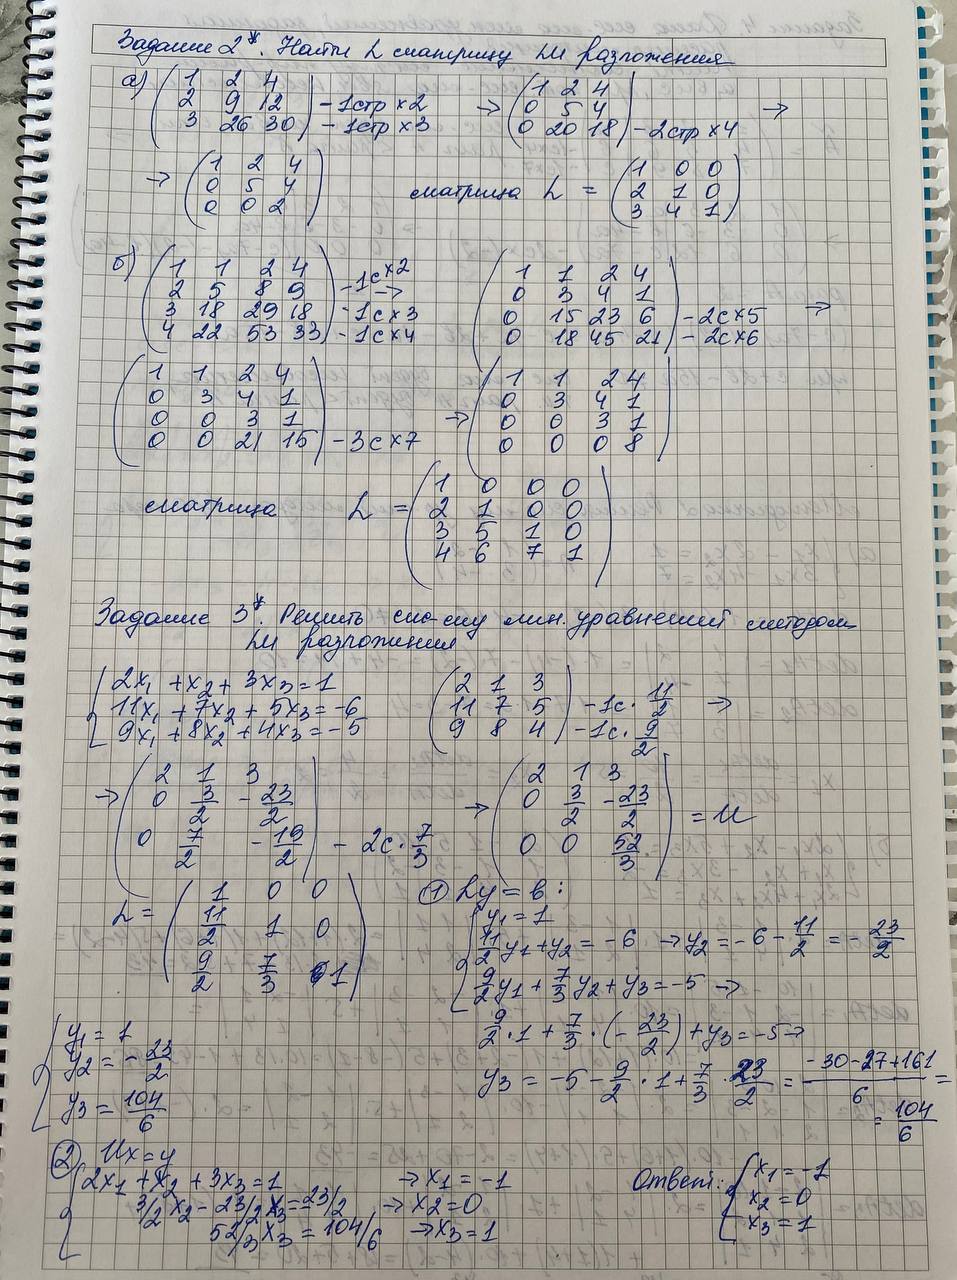 Задание 2*. Найти L матрицу LU разложения
а) (1 2 4
2 9 12 - 1стр x 2
3 26 30) - 1стр x 3 → (1 2 4
0 5 4
0 20 18) - 2стр x 4 →
→ (1 2 4
0 5 4
0 0 2) матрица L = (1 0 0
2 1 0
3 4 1)
б) (1 1 2 4
2 5 8 9 - 1с x 2
3 18 29 18 - 1с x 3
4 22 53 33) - 1с x 4 → (1 1 2 4
0 3 4 1
0 15 23 6 - 2с x 5
0 18 45 21) - 2с x 6 →
(1 1 2 4
0 3 4 1
0 0 3 1
0 0 21 15) - 3с x 7 → (1 1 2 4
0 3 4 1
0 0 3 1
0 0 0 8)
матрица L = (1 0 0 0
2 1 0 0
3 5 1 0
4 6 7 1)
Задание 3*. Решить сис-му лин. уравнений методом
LU разложения
{2x₁ + x₂ + 3x₃ = 1
11x₁ + 7x₂ + 5x₃ = -6
9x₁ + 8x₂ + 4x₃ = -5
(2 1 3
11 7 5 - 1с · 11/2
9 8 4) - 1с · 9/2 →
→ (2 1 3
0 3/2 -23/2
0 7/2 -19/2) - 2с · 7/3 → (2 1 3
0 3/2 -23/2
0 0 52/3) = U
L = (1 0 0
11/2 1 0
9/2 7/3 1)
① Ly = b:
{y₁ = 1
11/2 y₁ + y₂ = -6 → y₂ = -6 - 11/2 = -23/2
9/2 y₁ + 7/3 y₂ + y₃ = -5 →
9/2 · 1 + 7/3 · (-23/2) + y₃ = -5 →
y₃ = -5 - 9/2 · 1 + 7/3 · 23/2 = (-30-27+161)/6 =
= 104/6
{y₁ = 1
y₂ = -23/2
y₃ = 104/6
② Ux = y
{2x₁ + x₂ + 3x₃ = 1 → x₁ = -1
3/2 x₂ - 23/2 x₃ = -23/2 → x₂ = 0
52/3 x₃ = 104/6 → x₃ = 1
Ответ: {x₁ = -1
x₂ = 0
x₃ = 1